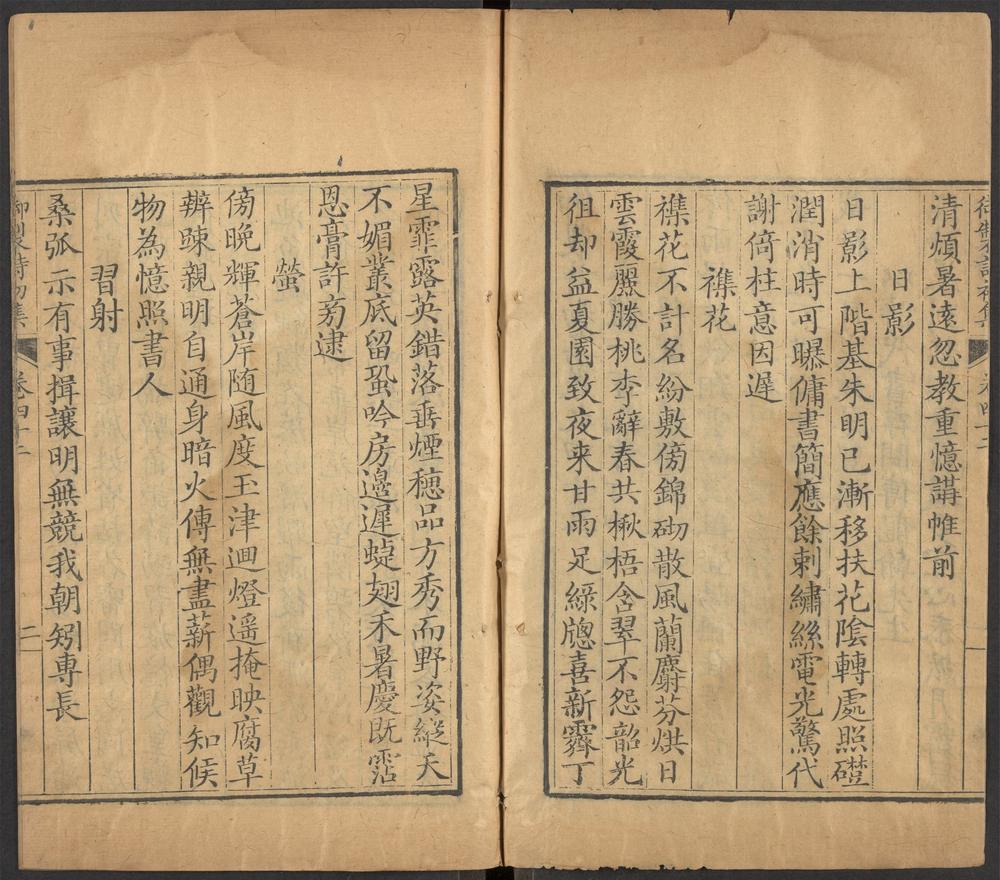 御製詩初集
卷四十二
一
清煩暑遠忽教重憶講帷前
日影
日影上階基朱明已漸移扶花陰轉處照礎
潤消時可曝傭書簡應餘刺繡絲電光驚代
謝倚柱意因遲
襍花
襍花不計名紛敷傍錦砌散風蘭麝芬烘日
雲霞麗勝桃李辭春共楸梧含翠不怨韶光
徂却益夏園致夜来甘雨足綠牕喜新霽丁
星霏露英錯落垂煙穗品方秀而野姿縱夭
不媚叢底留蛩吟房邊遲蜨翅禾暑慶既霑
恩膏許旁逮
螢
傍晚輝蒼岸随風度玉津迴燈遥掩映腐草
辨踈親明自通身暗火傳無盡薪偶觀知候
物為憶照書人
習射
桑弧示有事揖讓明無競我朝夠専長
御製詩初集
卷四十二
二